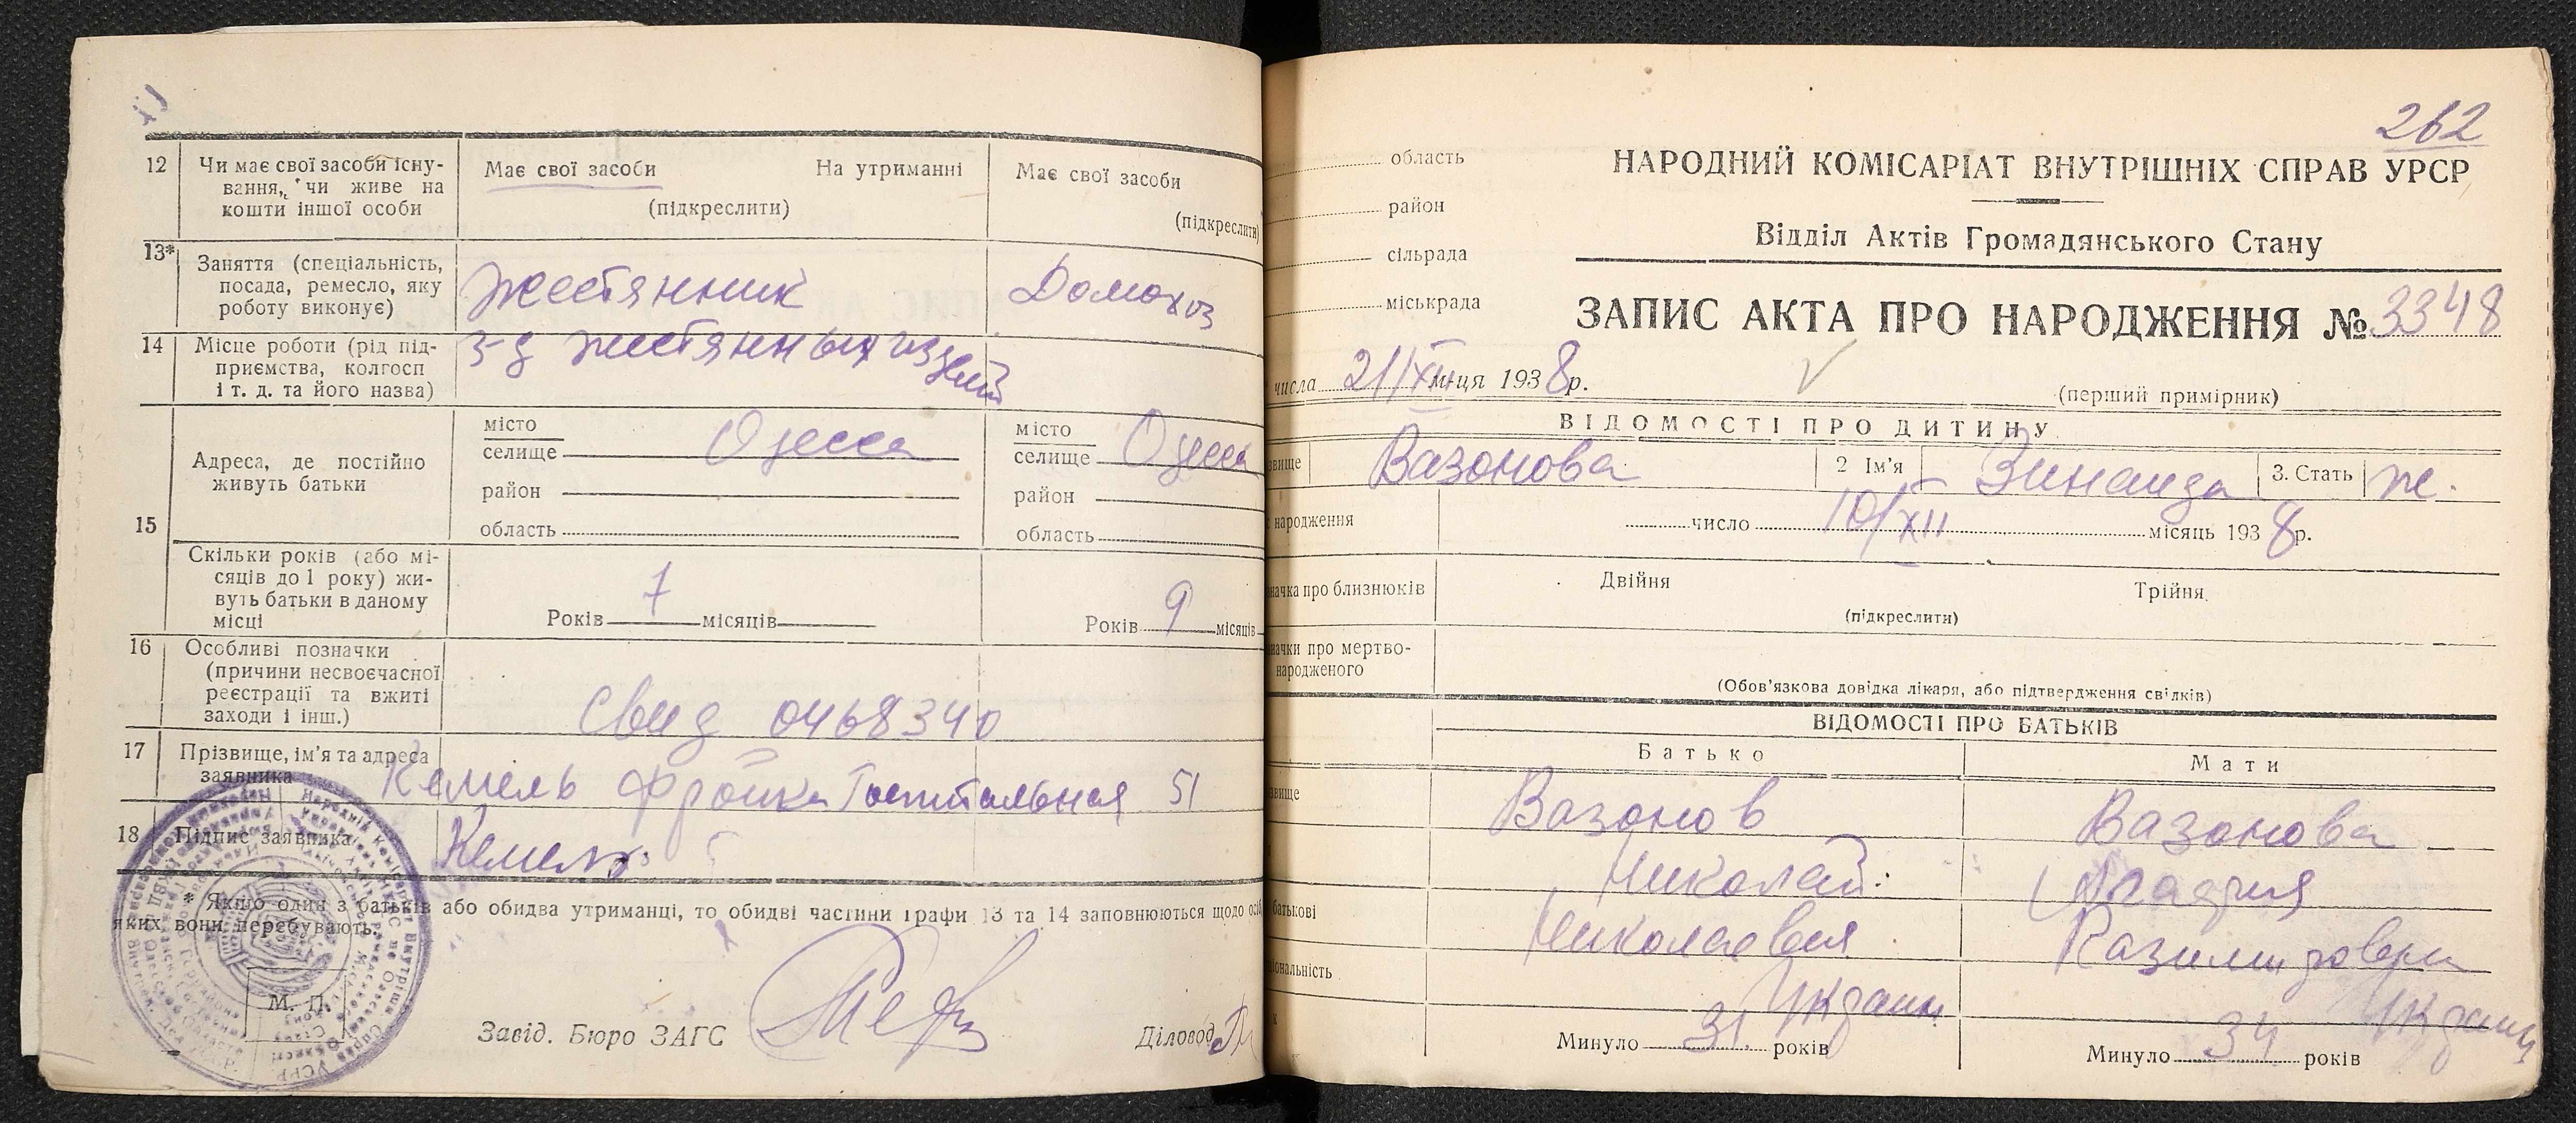 12 Чи має свої засоби існу-
вання, чи живе на
кошти іншої особи
Має свої засоби На утриманні
(підкреслити)
Має свої засоби
(підкреслити)
13* Заняття (спеціальність,
посада, ремесло, яку
роботу виконує)
Жестянник
Домохоз
14 Місце роботи (рід під-
приємства, колгосп
і т. д. та його назва)
з-д жестянных изделий
15 Адреса, де постійно
живуть батьки
місто
селище Одесса
район
область
місто
селище Одесса
район
область
Скільки років (або мі-
сяців до 1 року) жи-
вуть батьки в даному
місці
Років 7 місяців
Років 9 місяців
16 Особливі позначки
(причини несвоєчасної
реєстрації та вжиті
заходи і інш.)
Свид 0468340
17 Прізвище, ім'я та адреса
заявника
Кемель Фройка Госпитальная 51
18 Підпис заявника
Кемель
* Якщо один з батьків або обидва утриманці, то обидві частини графи 13 та 14 заповнюються щодо осіб
яких вони перебувають.
М. П.
Завід. Бюро ЗАГС
Діловод
262
область
район
сільрада
міськрада
НАРОДНИЙ КОМІСАРІАТ ВНУТРІШНІХ СПРАВ УРСР
Відділ Актів Громадянського Стану
ЗАПИС АКТА ПРО НАРОДЖЕННЯ № 3348
числа 21/XII м-ця 1938 р.
(перший примірник)
ВІДОМОСТІ ПРО ДИТИНУ
звище Вазонова 2 Ім'я Зинаида 3. Стать ж.
народження число 10/XII місяць 1938 р.
начка про близнюків Двійня Трійня
(підкреслити)
начки про мертво-
народженого
(Обов'язкова довідка лікаря, або підтвердження свідків)
ВІДОМОСТІ ПРО БАТЬКІВ
Батько Мати
звище Вазонов Вазонова
Николай
батькові Николаевич Казимировна
іональність Украин Украин
Минуло 31 років Минуло 34 років